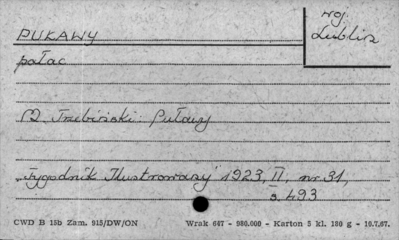 woj.
Lublin
PUKAWY
pałac
M. Trzebiński: Puławy
"Tygodnik Ilustrowany" 1923, II, nr. 31,
s. 493
CWD B 15b Zam. 915/DW/ON Wrak 647 - 980.000 - Karton 5 kl. 180 g - 10.7.67.